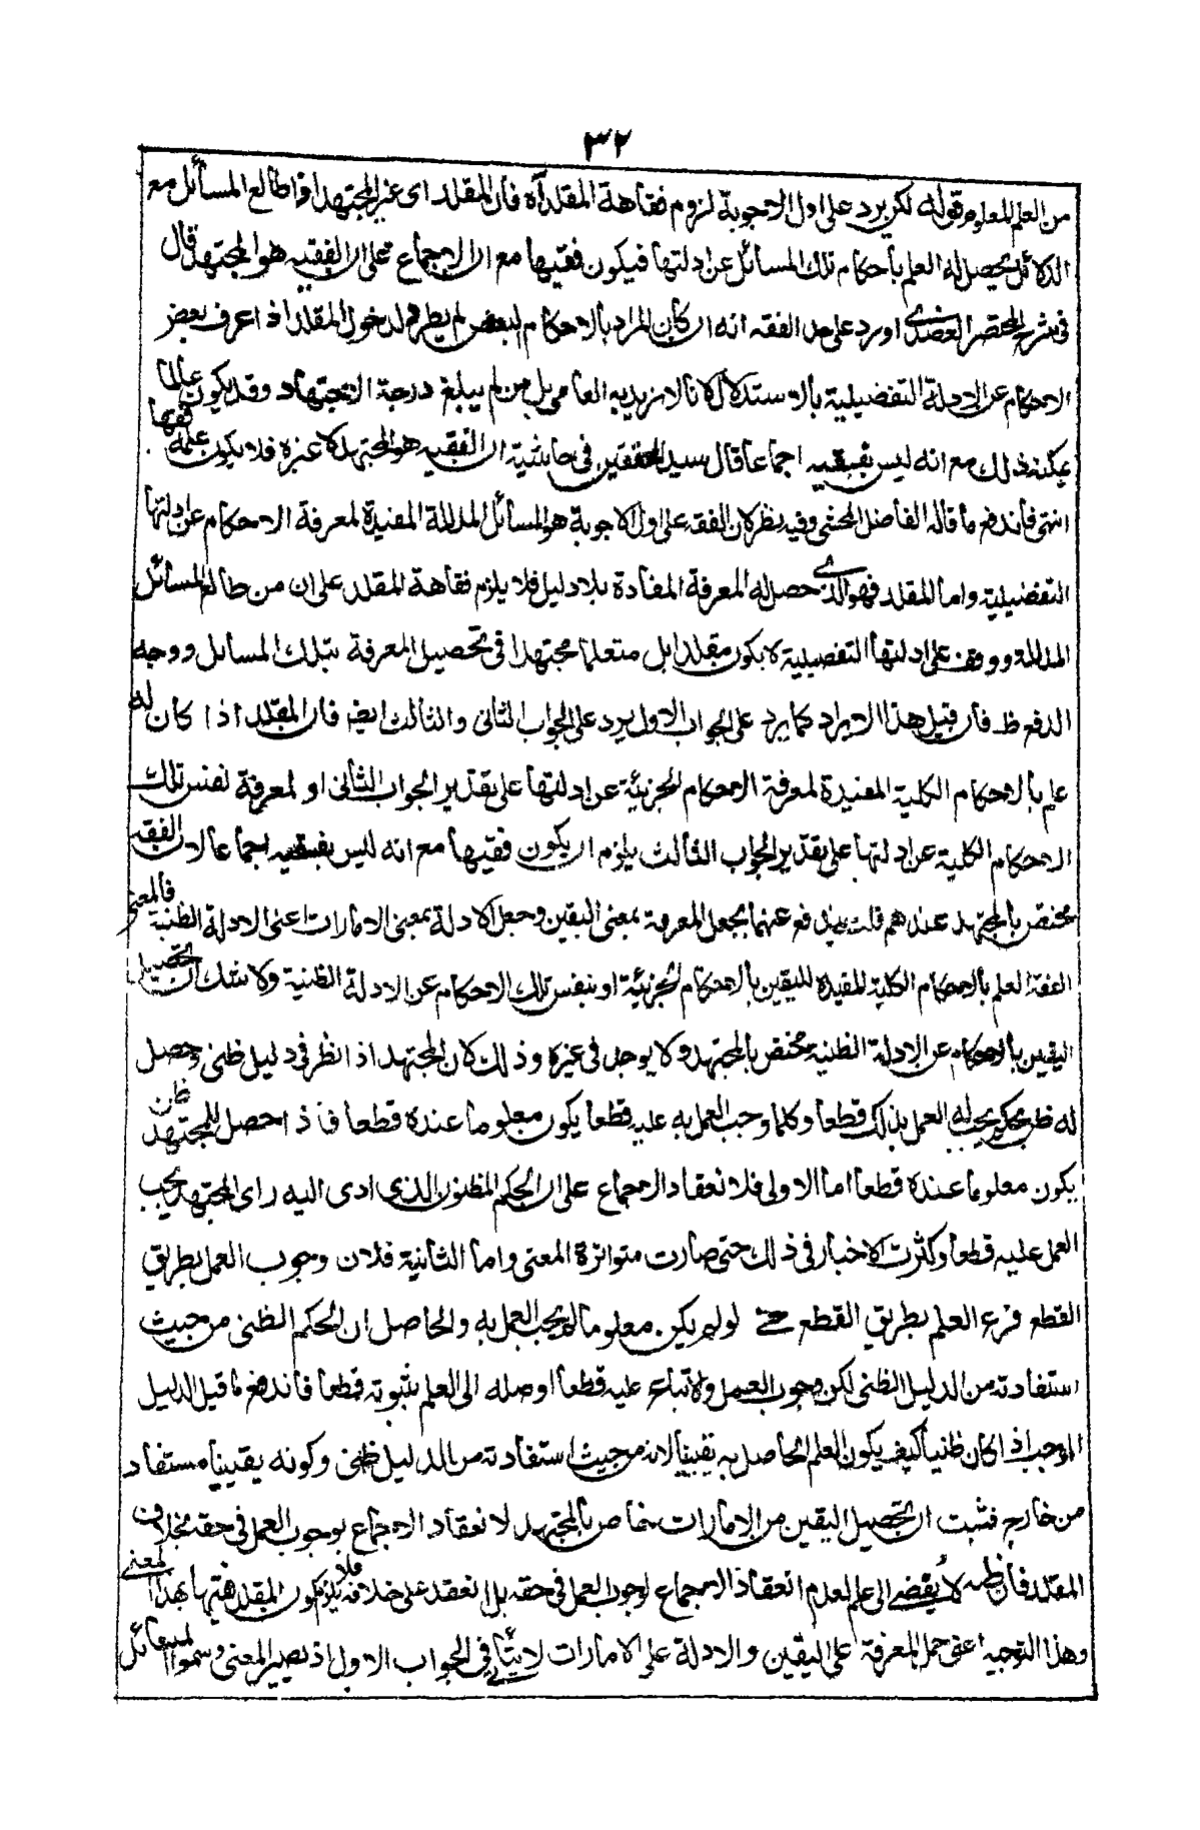 ٣٢
من العلم المعلوم قوله لكن يرد على اول الاجوبة لزوم فقاهة المقلد آه فان المقلد اى غير المجتهد اذا طالع المسائل مع
الدلائل يحصل له العلم بأحكام تلك المسائل عن ادلتها فيكون فقيها مع ان الاجماع على ان الفقيه هو المجتهد قال
فى شرح المختصر العضدى اورد على حد الفقه انه ان كان المراد بالاحكام البعض لم يطرد لدخول المقلد اذا عرف بعض
الاحكام عن الادلة التفصيلية بالاستدلال لانا لا نريد به العامى بل من لم يبلغ درجة الاجتهاد وقد يكون عالما
يمكنه ذلك مع انه ليس بفقيه اجماعا قال سيد المحققين فى حاشية ان الفقيه هو المجتهد لا غيره فلا يكون علمه فقها
انتهى فاندفع ما قاله الفاضل المحشى وفيه نظر لان الفقه على اول الاجوبة هو المسائل المدللة المفيدة لمعرفة الاحكام عن ادلتها
التفصيلية واما المقلد فهو الذى حصل له المعرفة المفادة بلا دليل فلا يلزم فقاهة المقلد على ان من طالع المسائل
المدللة ووقف على ادلتها التفصيلية لا يكون مقلدا بل متعلما مجتهدا فى تحصيل المعرفة بتلك المسائل ووجه
الدفع ظ فان قيل هذا الايراد كما يرد على الجواب الاول يرد على الجواب الثانى والثالث ايضا فان المقلد اذا كان له
علم بالاحكام الكلية المفيدة لمعرفة الاحكام الجزئية عن ادلتها على تقدير الجواب الثانى او لمعرفة نفس تلك
الاحكام الكلية عن ادلتها على تقدير الجواب الثالث يلزم ان يكون فقيها مع انه ليس بفقيه اجماعا لان الفقه
مختص بالمجتهد عندهم قلت يندفع عنهما بجعل المعرفة بمعنى اليقين وجعل الادلة بمعنى الامارات اعنى الادلة الظنية فالمعنى
الفقه العلم بالاحكام الكلية المفيدة لليقين بالاحكام الجزئية او بنفس تلك الاحكام عن الادلة الظنية ولا شك ان تحصيل
اليقين بالاحكام عن الادلة الظنية مختص بالمجتهد ولا يوجد فى غيره وذلك لان المجتهد اذا نظر فى دليل ظنى وحصل
له ظن بحكم يجب له العمل بذلك قطعا وكلما وجب العمل به عليه قطعا يكون معلوما عنده قطعا فاذا حصل للمجتهد ظن
يكون معلوما عنده قطعا اما الاولى فلانعقاد الاجماع على ان الحكم المظنون الذى ادى اليه راى المجتهد يجب
العمل عليه قطعا وكثرت الاخبار فى ذلك حتى صارت متواترة المعنى واما الثانية فلان وجوب العمل بطريق
القطع فرع العلم بطريق القطع حتى لو لم يكن معلوما لم يجب العمل به والحاصل ان الحكم الظنى من حيث
استفادته من الدليل الظنى لكن وجوب العمل والاتباع عليه قطعا اوصله الى العلم بثبوته قطعا فاندفع ما قيل الدليل
الموجب اذا كان ظنيا كيف يكون العلم الحاصل به يقينيا لانه من حيث استفادته من الدليل ظنى وكونه يقينيا مستفاد
من خارج فثبت ان تحصيل اليقين من الامارات خاص بالمجتهد لانعقاد الاجماع بوجوب العمل فى حقه بخلاف
المقلد فان ظنه لا يفضى الى علم لعدم انعقاد الاجماع لوجوب العمل فى حقه بل انعقد على خلافه فلا يلزم كون المقلد فقيها بهذا المعنى
وهذا التوجيه اعنى حمل المعرفة على اليقين والادلة على الامارات لا يتأتى فى الجواب الاول اذ يصير المعنى وسموا المسائل